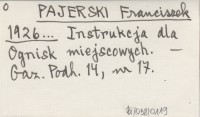 O
PAJERSKI Franciszek
1926... Instrukcja dla
Ognisk miejscowych. —
Gaz. Podh. 14, nr 17.